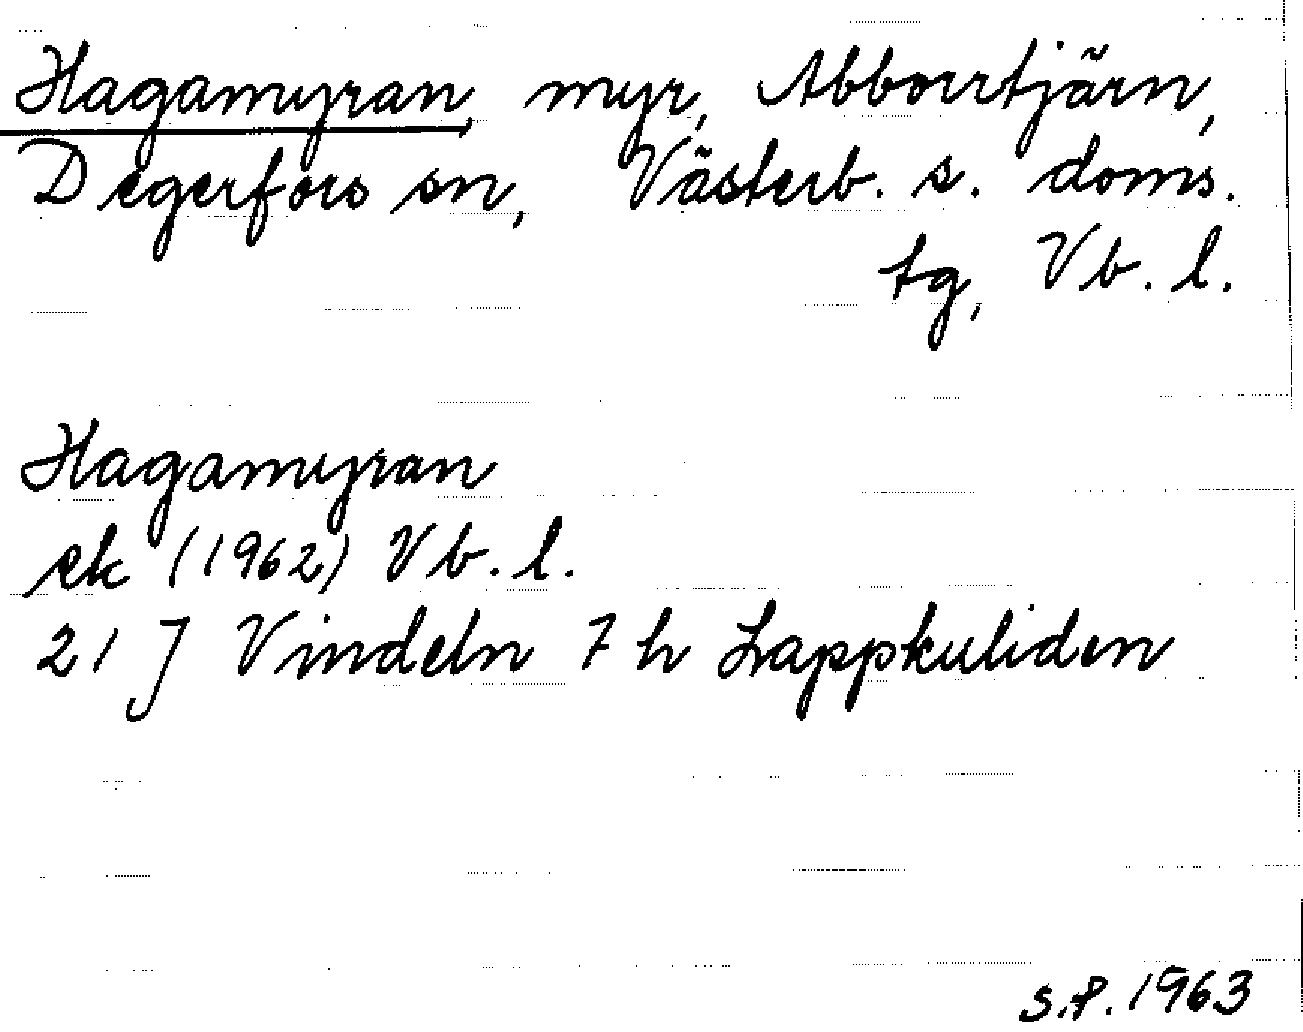 Hagamyran, myr, Abborrtjärn,
Degerfors sn, Västerb. s. doms.
tg, Vb. l.
Hagamyran
ek (1962) Vb. l.
21 J Vindeln 7 h Lappkuliden
S.P. 1963